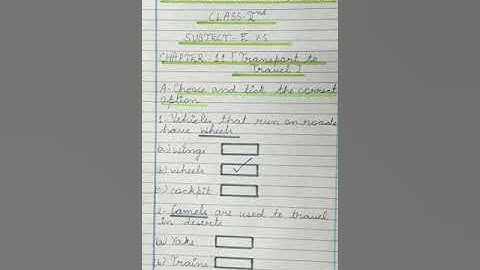 CLASS-Ind
SUBJECT- E VS
CHAPTER-11 [Transport to
Travel]
A- Choose and tick the correct
option
1- Vehicles that run on roads
have wheels
a) wings
b) wheels
c) cockpit
2- Camels are used to travel
in deserts
a) Yaks
b) Trains